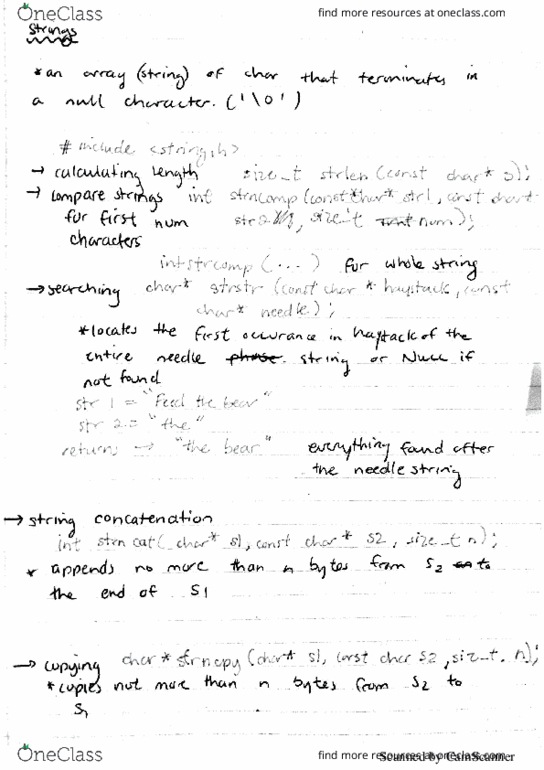 OneClass
find more resources at oneclass.com
Strings
* an array (string) of char that terminates in
a null character. ('\0')
# include <string.h>
→ calculating length size_t strlen (const char* s);
→ compare strings int strncomp (const char* str1, const char*
for first num str2, size_t num);
characters
int strcomp (...) for whole string
→ searching char* strstr (const char * haystack, const
char* needle);
* locates the first occurance in haystack of the
entire needle phrase string or NULL if
not found
str 1 = "Feed the bear"
str 2 = "the"
returns → "the bear" everything found after
the needle string
→ string concatenation
int strn cat( char* s1, const char* s2, size_t n);
* appends no more than n bytes from s2 to
the end of s1
→ copying char* strncpy (char* s1, const char s2, size_t n);
* copies not more than n bytes from s2 to
s1
OneClass
find more resources at oneclass.com
Scanned by CamScanner